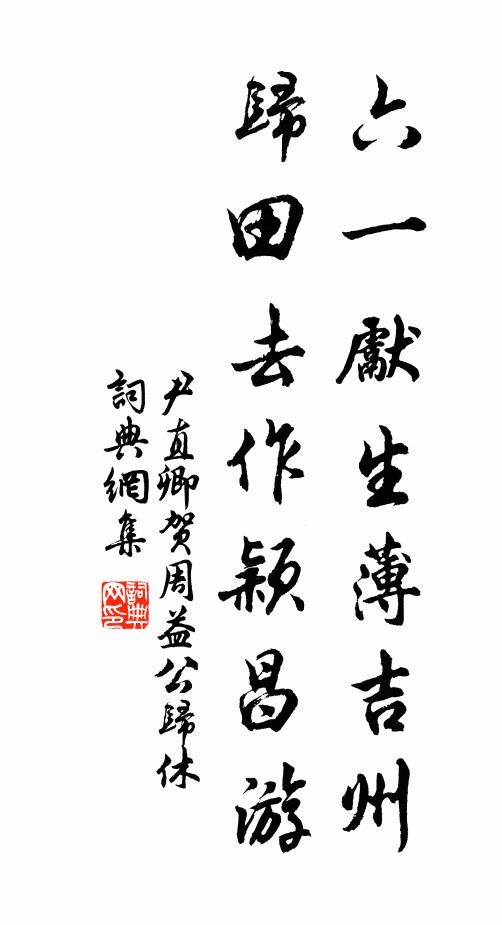 六一獻生薄吉州
歸田去作穎昌游
尹直卿贺周益公歸休
詞典網集
詞典网印